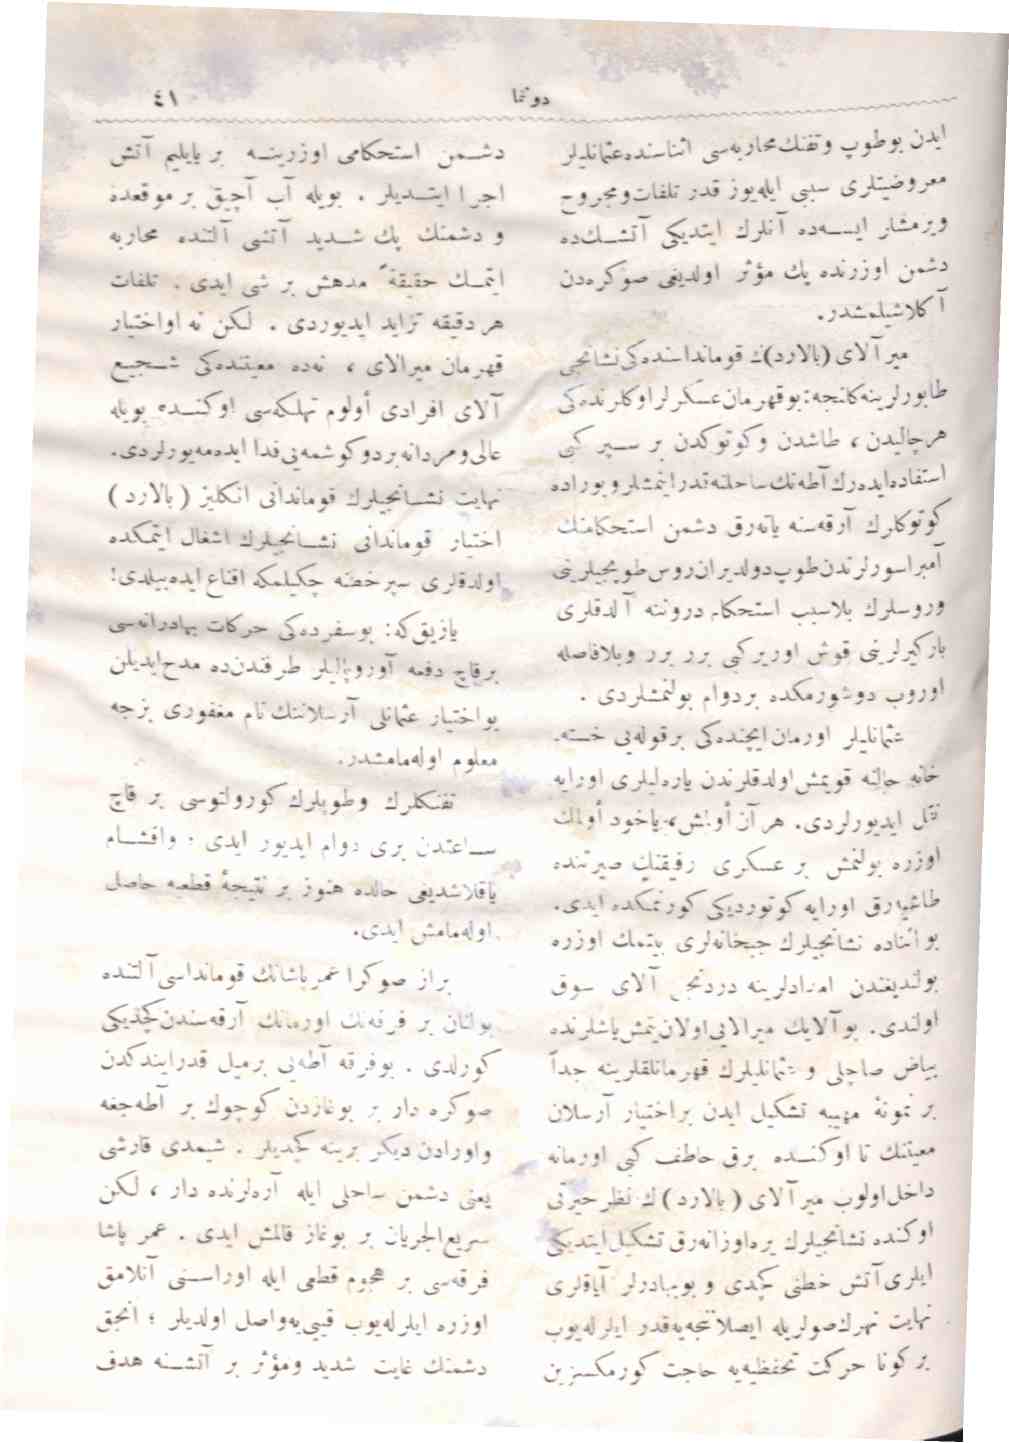 دوننما
٤١
ایدن بو طوپ و تفنك محاربه‌سی اثناسنده عثمانلیلر
معروضیتلری سببی ایله یوز قدر تلفات و مجروح
ویرمشلر ایسه‌ده آنلرك ایتدیکی آتشك ده
دشمن اوزرنده پك مؤثر اولدیغی صوکره‌دن
آکلاشیلمشدر.
میر آلای (بالارد)ك قومانداسنده‌کی نشانجی
طابورلرینه کلنجه: بو قهرمان عسکرلر اوکلرنده‌کی
هر چالیدن ، طاشدن و کوتوکدن بر سپر کبی
استفاده ایده‌رك آطه‌نك ساحلنه قدر اینمشلر و بوراده
کوتوکلرك آرقه‌سنه یاته‌رق دشمن استحکامنك
آمبراسورلرندن طوپ دولدیران روس طوپجیلرینی
و روسلرك بلاسبب استحکام دروننه آلدقلری
بارکیرلرینی قوش اورر کبی برر برر و بلافاصله
اوروب دوشورمکده بر دوام بولنمشلردی .
عثمانلیلر اورمان ایچنده‌کی بر قوله‌یی خسته
خانه حالنه قویمش اولدقلرندن یاره‌لیلری اورایه
نقل ایدیورلردی. هر آن أولمش، یاخود أولمك
اوزره بولنمش بر عسکری رفیقنك صیرتنده
طاشیه‌رق اورایه کوتوردیکی کورنمکده ایدی.
بو اثناده نشانجیلرك جبخانه‌لری بیتمك اوزره
بولندیغندن امدادلرینه دردنجی آلای سوق
اولندی. بو آلایك میرالایی اولان یتمش یاشلرنده
بیاض صاچلی و عثمانلیلرك قهرمانلقلرینه جداً
بر نمونهٔ مهیبه تشکیل ایدن بر اختیار آرسلان
معیتنك تا اوکنده برق خاطف کبی اورمانه
داخل اولوب میر آلای ( بالارد ) ك نظر حیرتی
اوکنده نشانجیلرك یره اوزانه‌رق تشکیل ایتدیکی
ایلری آتش خطنی کچدی و بو بهادرلر آیاقلری
نهایت نهرك صولریله ایصلاننجه‌یه قدر ایلرله‌یوب
بر کونا حرکت تحفظیه‌یه حاجت کورمکسزین
دشمن استحکامی اوزرینه بر یایلیم آتش
اجرا ایتدیلر . بویله آب آچیق بر موقعده
و دشمنك پك شدید آتشی آلتنده محاربه
ایتمك حقیقةً مدهش بر شی ایدی . تلفات
هر دقیقه تزاید ایدیوردی . لکن نه او اختیار
قهرمان میرالای ، نه‌ده معیتنده‌کی شجیع
آلای افرادی أولوم تهلکه‌سی اوکنده بویله
عالی و مردانه بر دوکوشمه‌یی فدا ایده‌مه‌یورلردی.
نهایت نشانجیلرك قوماندانی انکلیز ( بالارد )
اختیار قوماندانی نشانجیلرك اشغال ایتمکده
اولدقلری سپر خطنه چکیلمکه اقناع ایده‌بیلدی!
یازیق که: بو سفرده‌کی حرکات بهادرانه‌سی
بر قاچ دفعه آوروپالیلر طرفندن ده مدح ایدیلن
بو اختیار عثمانلی آرسلاننك نام مغفوری بزجه
معلوم اوله‌مامشدر.
تفنکلرك و طوپلرك کورولتوسی بر قاچ
ساعتدن بری دوام ایدیور ایدی ؛ و اقشام
یاقلاشدیغی حالده هنوز بر نتیجهٔ قطعیه حاصل
اوله‌مامش ایدی.
براز صوکرا عمر پاشانك قومانداسی آلتنده
بولنان بر فرقه‌نك اورمانك آرقه‌سندن کچدیکی
کورلدی . بو فرقه آطه‌یی بر میل قدر ایندکدن
صوکره دار بر بوغازدن کوچوك بر آطه‌جغه
و اورادن دیکر برینه کچدیلر . شیمدی قارشی
یعنی دشمن ساحلی ایله آره‌لرنده دار ، لکن
سریع الجریان بر بوغاز قالمش ایدی . عمر پاشا
فرقه‌سی بر هجوم قطعی ایله اوراسنی آتلامق
اوزره ایلرله‌یوب قیی‌یه واصل اولدیلر ؛ انجق
دشمنك غایت شدید و مؤثر بر آتشنه هدف